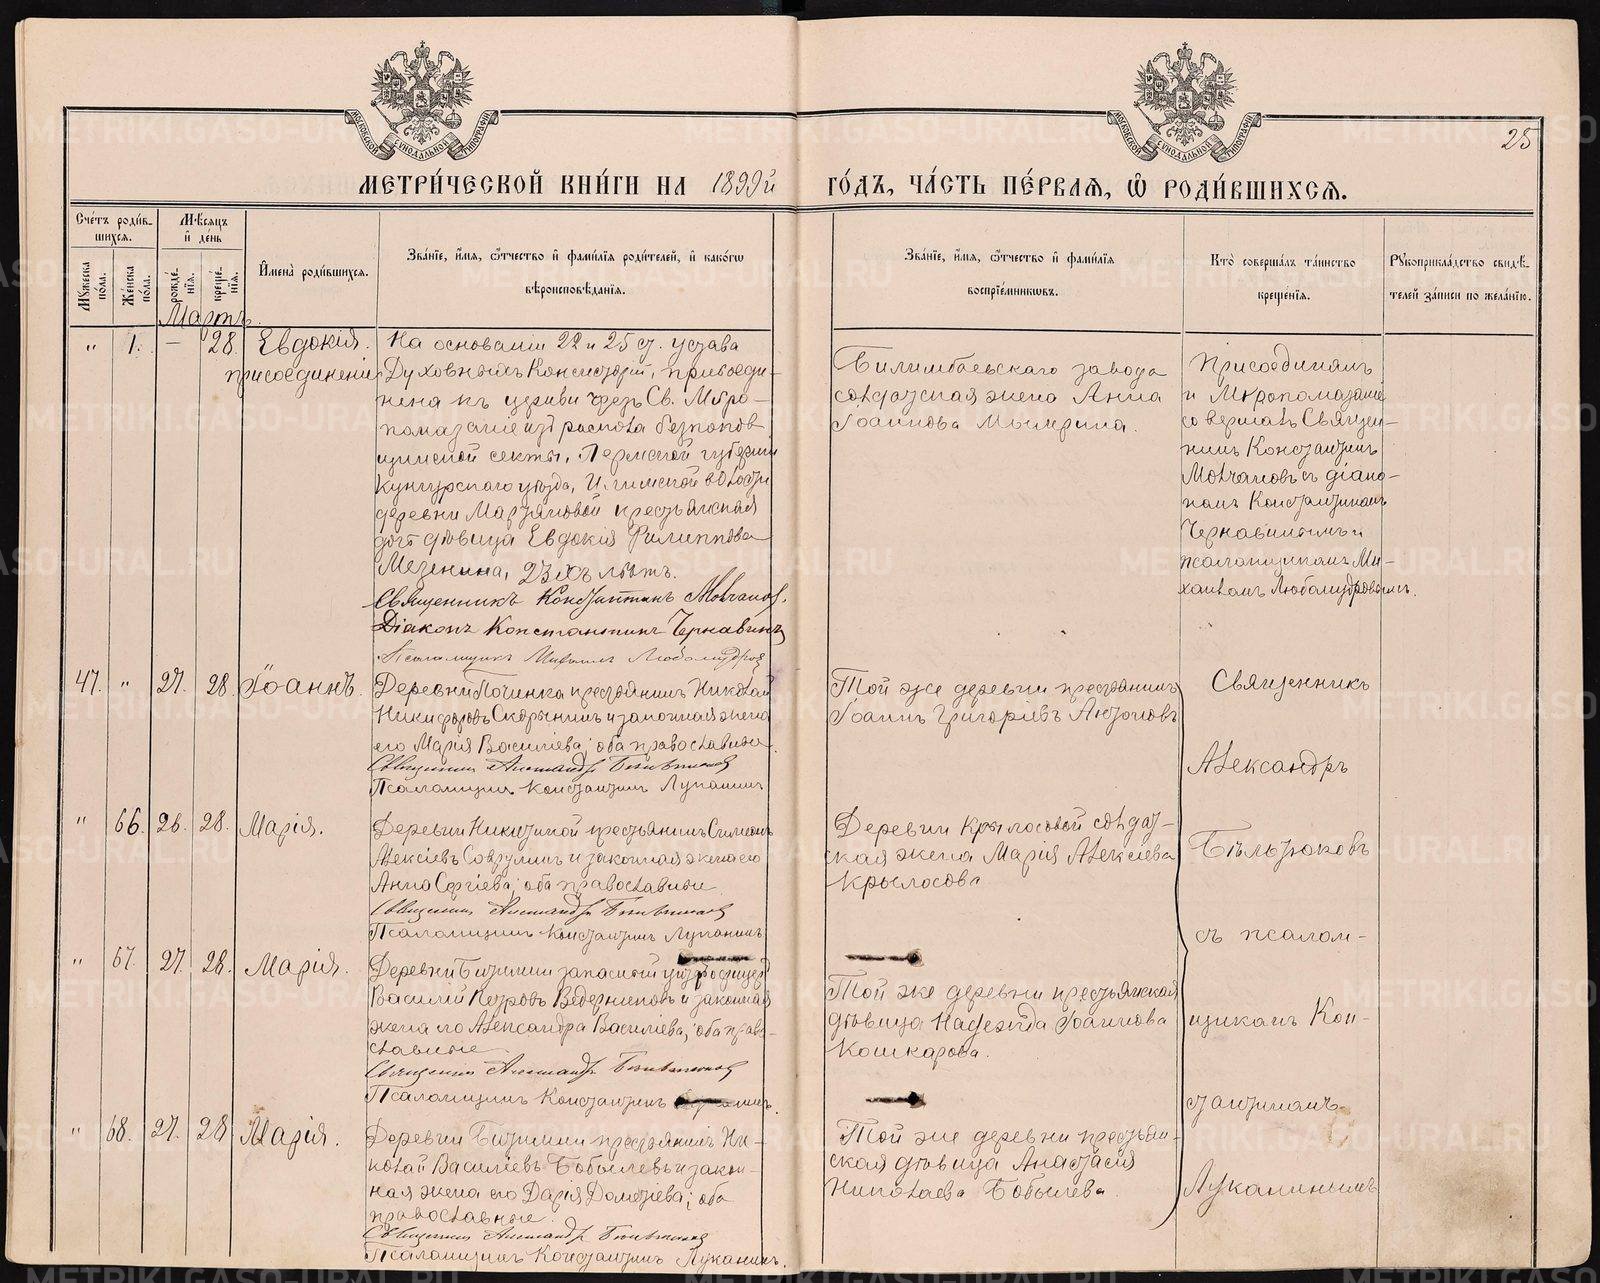 МОСКОВСКОЙ СѴНОДАЛЬНОЙ ТИПОГРАФІИ
МОСКОВСКОЙ СѴНОДАЛЬНОЙ ТИПОГРАФІИ
25
МЕТРИ́ЧЕСКОЙ КНИ́ГИ НА 1899й ГО́ДЪ, ЧА́СТЬ ПЕ́РВАЯ, Ѽ РОДИ́ВШИХСЯ.
Сче́тъ роди́в-
шихся.
Мѣ́сяцъ
и҆ де́нь
Мꙋжеска по́ла.
Же́нска по́ла.
рожде́нїя.
креще́нїя.
И҆мена̀ роди́вшихся.
Зва́нїе, и҆́мя, ѻ҆́тчество и҆ фами́лїя роди́телей, и҆ како́гѡ
вѣроисповѣ́данїя.
Зва́нїе, и҆́мя, ѻ҆́тчество и҆ фами́лїя
воспрїе́мникѡвъ.
Кто̀ соверша́лъ та́инство
креще́нїя.
Рꙋкоприкла́дство свидѣ́-
телей за́писи по жела́нїю.
Мартъ.
" 1. — 28. Евдокія.
присоединеніе
На основаніи 22 и 25 ст. устава
Духовныхъ Консисторій, присоеди-
нена къ церкви чрезъ Св. Мѵро-
помазаніе изъ раскола безпопов
щинской секты, Пермской губерніи
Кунгурскаго уѣзда, Илимской волости
деревни Мартяновой крестьянская
дочь дѣвица Евдокія Филиппова
Мезенина, 23хъ лѣтъ.
Священникъ Константинъ Молчанов.
Діаконъ Константинъ Чернавинъ
Псаломщикъ Михаилъ Любомудров
Билимбаевскаго завода
солдатская жена Анна
Іоаннова Мымрина.
Присоединялъ
и Мѵропомазаніе
совершалъ Священ-
никъ Константинъ
Молчановъ съ діако-
номъ Константиномъ
Чернавинымъ и
псаломщикомъ Ми-
хаиломъ Любомудровымъ.
47. " 27. 28. Іоаннъ.
Деревни Починка крестьянинъ Николай
Никифоровъ Скорынинъ и законная жена
его Марія Васильева; оба православные.
Священникъ Александръ Бѣльтюковъ
Псаломщикъ Константинъ Луканинъ
Той же деревни крестьянинъ
Іоаннъ Григорьевъ Антоновъ
Священникъ
Александръ
Бѣльтюковъ
съ псалом-
щикомъ Кон-
стантиномъ
Луканинымъ
" 66. 26. 28. Марія.
Деревни Никитиной крестьянинъ Симеонъ
Алексіевъ Соврулинъ и законная жена его
Анна Сергіева; оба православные
Священникъ Александръ Бѣльтюковъ
Псаломщикъ Константинъ Луканинъ
Деревни Крылосовой солдат-
ская жена Марія Алексіева
Крылосова
" 67. 27. 28. Марія.
Деревни Битимки запасный унт. офицеръ
Василій Петровъ Ведерниковъ и законная
жена его Александра Василіева; оба право-
славные
Священникъ Александръ Бѣльтюковъ
Псаломщикъ Константинъ
Той же деревни крестьянская
дѣвица Надежда Іоаннова
Кошкарова.
" 68. 27. 28 Марія.
Деревни Битимки крестьянинъ Ни-
колай Василіевъ Бобылевъ и закон-
ная жена его Дарія Дометіева; оба
православные.
Священникъ Александръ Бѣльтюковъ
Псаломщикъ Константинъ Луканинъ.
Той же деревни крестьян-
ская дѣвица Анастасія
Николаева Бобылева.
METRIKI.GASO-URAL.RU